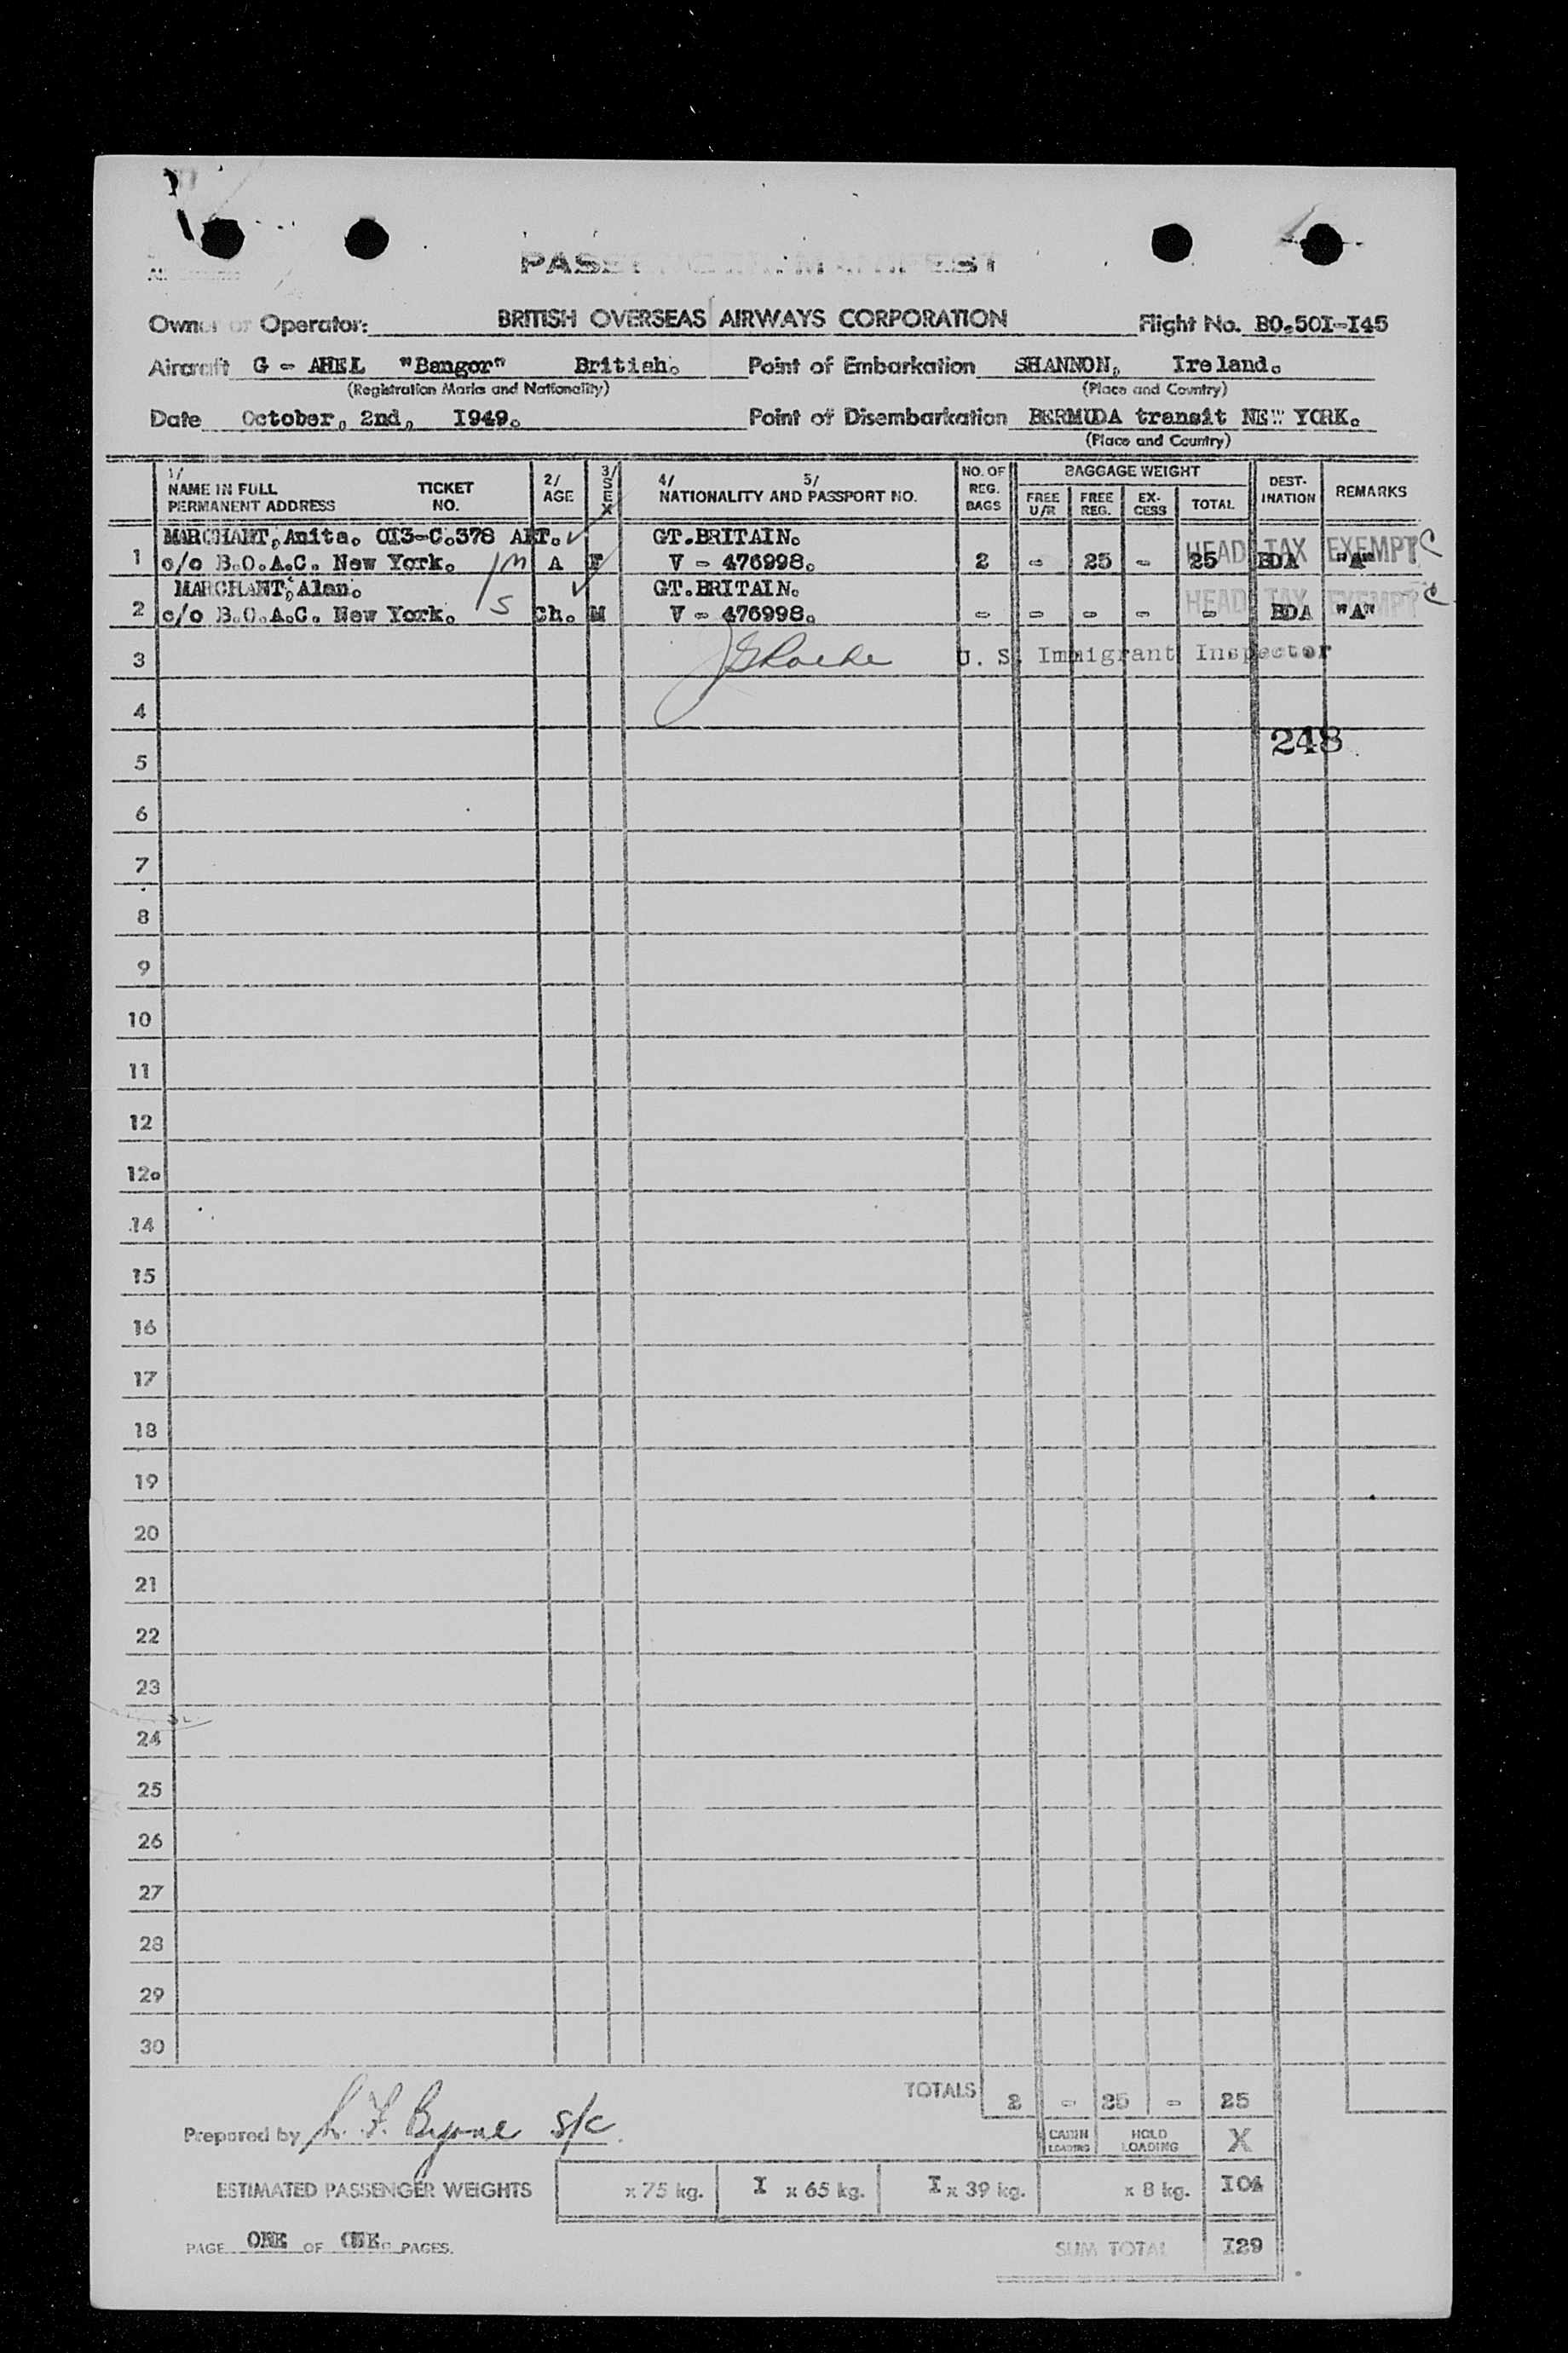 PASSENGER MANIFEST
Owner or Operator: BRITISH OVERSEAS AIRWAYS CORPORATION Flight No. BO.50I-I45
Aircraft G - AHEL "Bangor" British. Point of Embarkation SHANNON, Ireland.
(Registration Marks and Nationality) (Place and Country)
Date October, 2nd, I949. Point of Disembarkation BERMUDA transit NEW YORK.
(Place and Country)
1/ NAME IN FULL PERMANENT ADDRESS TICKET NO. 2/ AGE 3/ SEX 4/ 5/ NATIONALITY AND PASSPORT NO. NO. OF REG. BAGS BAGGAGE WEIGHT FREE U/R FREE REG. EX-CESS TOTAL DEST-INATION REMARKS
MARCHANT, Anita. OI3-C.378 ART. ✓ GT.BRITAIN. HEAD TAX EXEMPT C
1 c/o B.O.A.C. New York. 1M A F V - 476998. 2 - 25 - 25 BDA "A"
MARCHANT, Alan. ✓ GT.BRITAIN. HEAD TAX EXEMPT C
2 c/o B.O.A.C. New York. 1S Ch. M V - 476998. - - - - - BDA "A"
3 U. S. Immigrant Inspector
4
5 248
6
7
8
9
10
11
12
12a
14
15
16
17
18
19
20
21
22
23
24
25
26
27
28
29
30
TOTALS 2 - 25 - 25
Prepared by L. F. Byrne S/C CABIN LOADING HOLD LOADING X
ESTIMATED PASSENGER WEIGHTS x 75 kg. I x 65 kg. I x 39 kg. x 8 kg. I04
PAGE ONE OF ONE. PAGES. SUM TOTAL I29